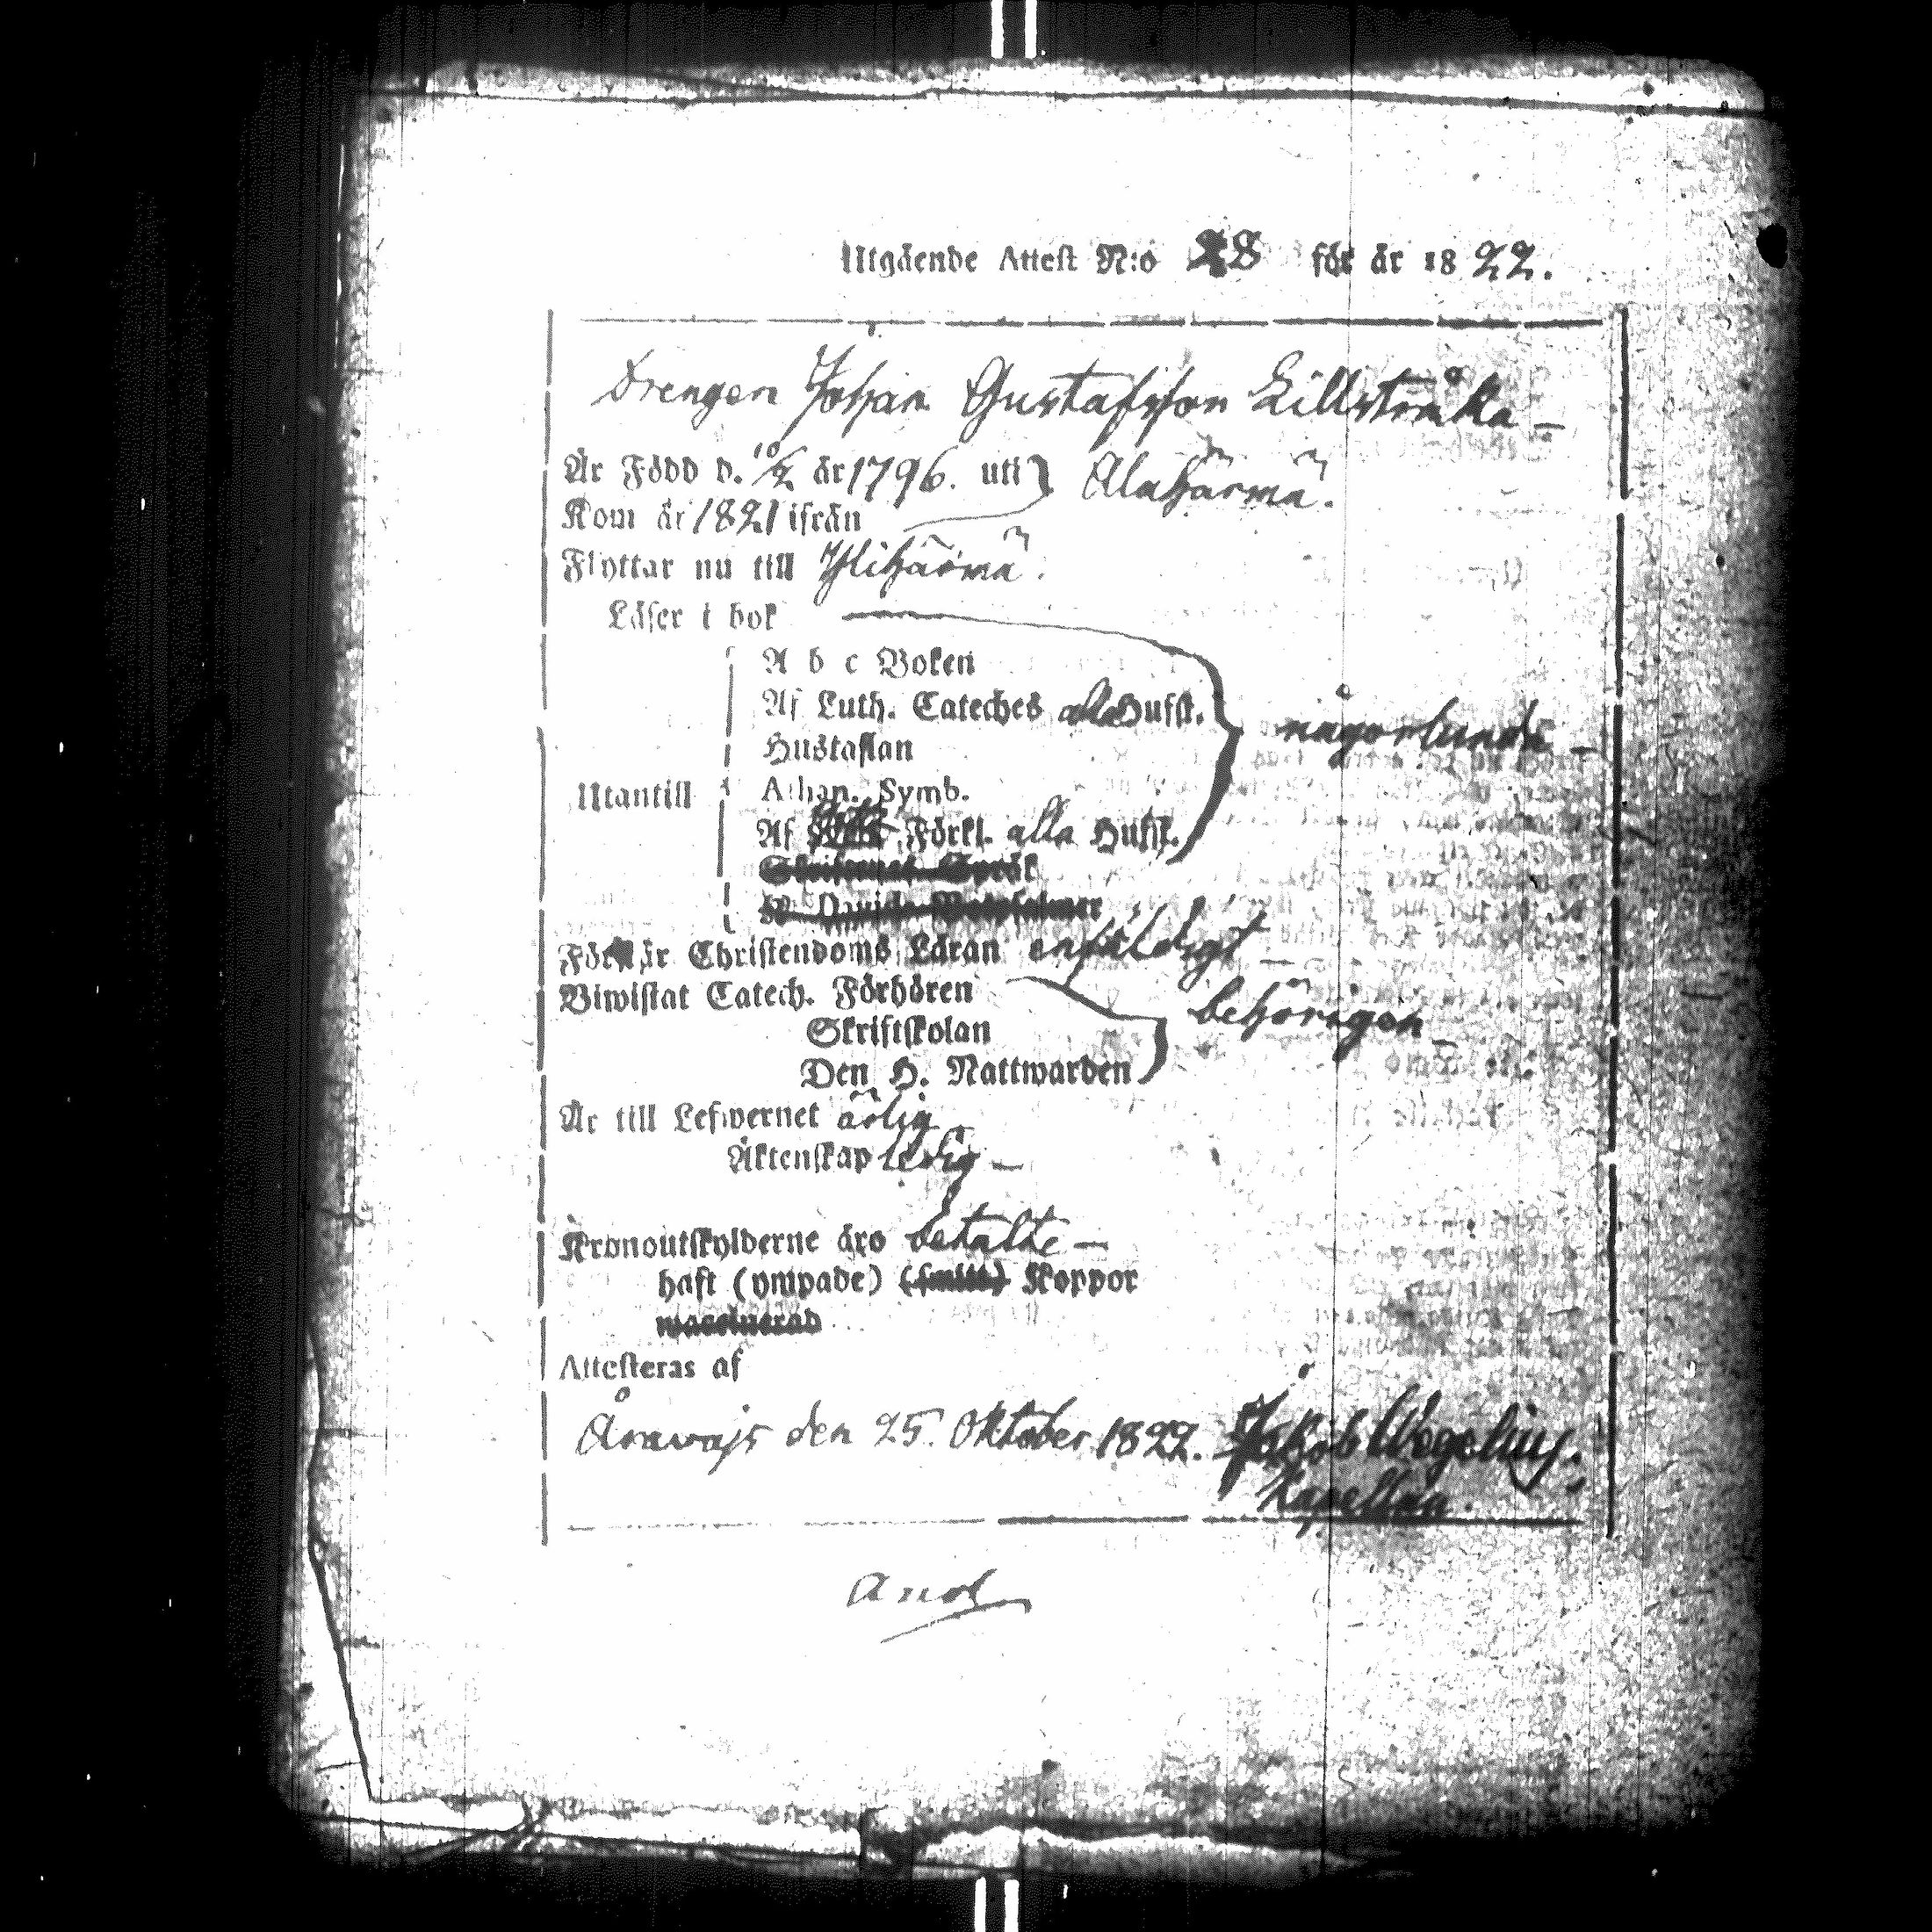 Utgående Attest N:o 28 för år 1822.
Drengen Johan Gustafsson Lillstråka –
Är Född d. 10/2 år 1796. uti } Alahärmä.
Kom år 1821 ifrån
Flyttar nu till Ylihärmä.
Läser i bok
A b c Boken
Af Luth. Cateches alla Hufst.
Hustaflan
någorlunda –
Utantill
Athan. Symb.
Af Förkl. alla Hufst.
Skriftenes Språk
K. Davids Botpsalmer
Förstår Christendoms Läran enfäldigt –
Biwistat Catech. Förhören
Skriftskolan
Den H. Nattwarden
behörigen –
Är till Lefwernet ärlig
Äktenskap ledig –
Kronoutskylderne äro betalte –
haft (ympade) (smitt) Koppor
waccinerad
Attesteras af
Årawajs den 25. Oktober 1822. Jakob Wegelius,
Kapellan.